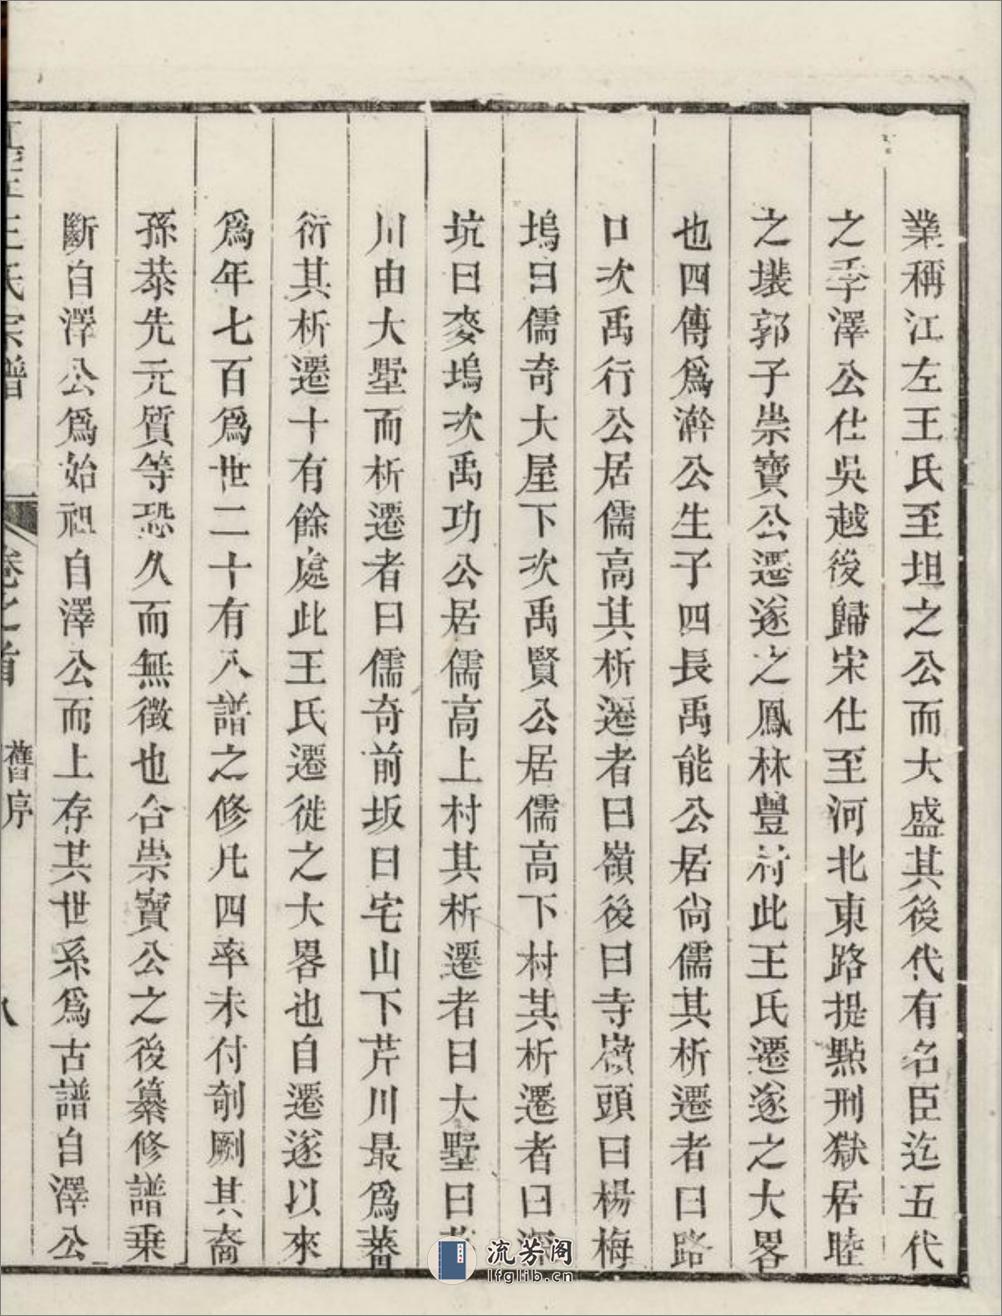 業稱江左王氏至坦之公而大盛其後代有名臣迄五代
之季澤公仕吳越後歸宋仕至河北東路提㸃刑獄居睦
之壊郭子崇寶公遷遂之鳳林豐村此王氏遷遂之大畧
也四傳爲澣公生子四長禹能公居尙儒其析遷者曰路
口次禹行公居儒高其析遷者曰嶺後曰寺嶺頭曰楊梅
塢曰儒奇大屋下次禹賢公居儒高下村其析遷者曰深
坑曰麥塢次禹功公居儒高上村其析遷者曰大墅曰
川由大墅而析遷者曰儒奇前坂曰宅山下芹川最爲蕃
衍其析遷十有餘處此王氏遷徙之大畧也自遷遂以來
爲年七百爲世二十有八譜之修凡四率未付剞劂其裔
孫菾先元質等恐久而無徵也合崇寶公之後纂修譜乗
斷自澤公爲始祖自澤公而上存其世系爲古譜自澤公
王氏宗譜
卷之首
舊序
八
流芳阁
lfglib.cn